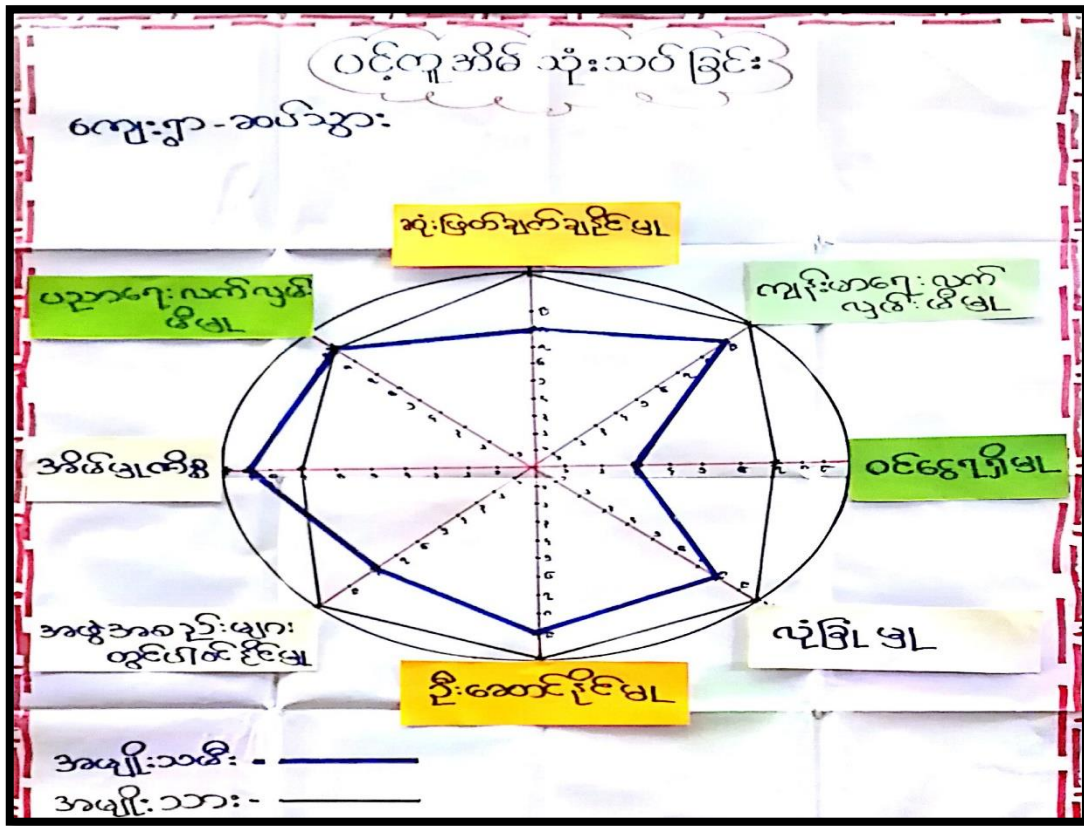 ပင့်ကူအိမ် သုံးသပ်ခြင်း
ကျေးရွာ - ဆပ်သွား
ဆုံးဖြတ်ချက်ချနိုင်မှု
ပညာရေးလက်လှမ်း
မီမှု
ကျန်းမာရေးလက်
လှမ်းမီမှု
အိမ်မှုကိစ္စ
ဝင်ငွေရရှိမှု
အဖွဲ့အစည်းများ
တွင်ပါဝင်နိုင်မှု
လုံခြုံမှု
ဦးဆောင်နိုင်မှု
အမျိုးသမီး -
အမျိုးသား -